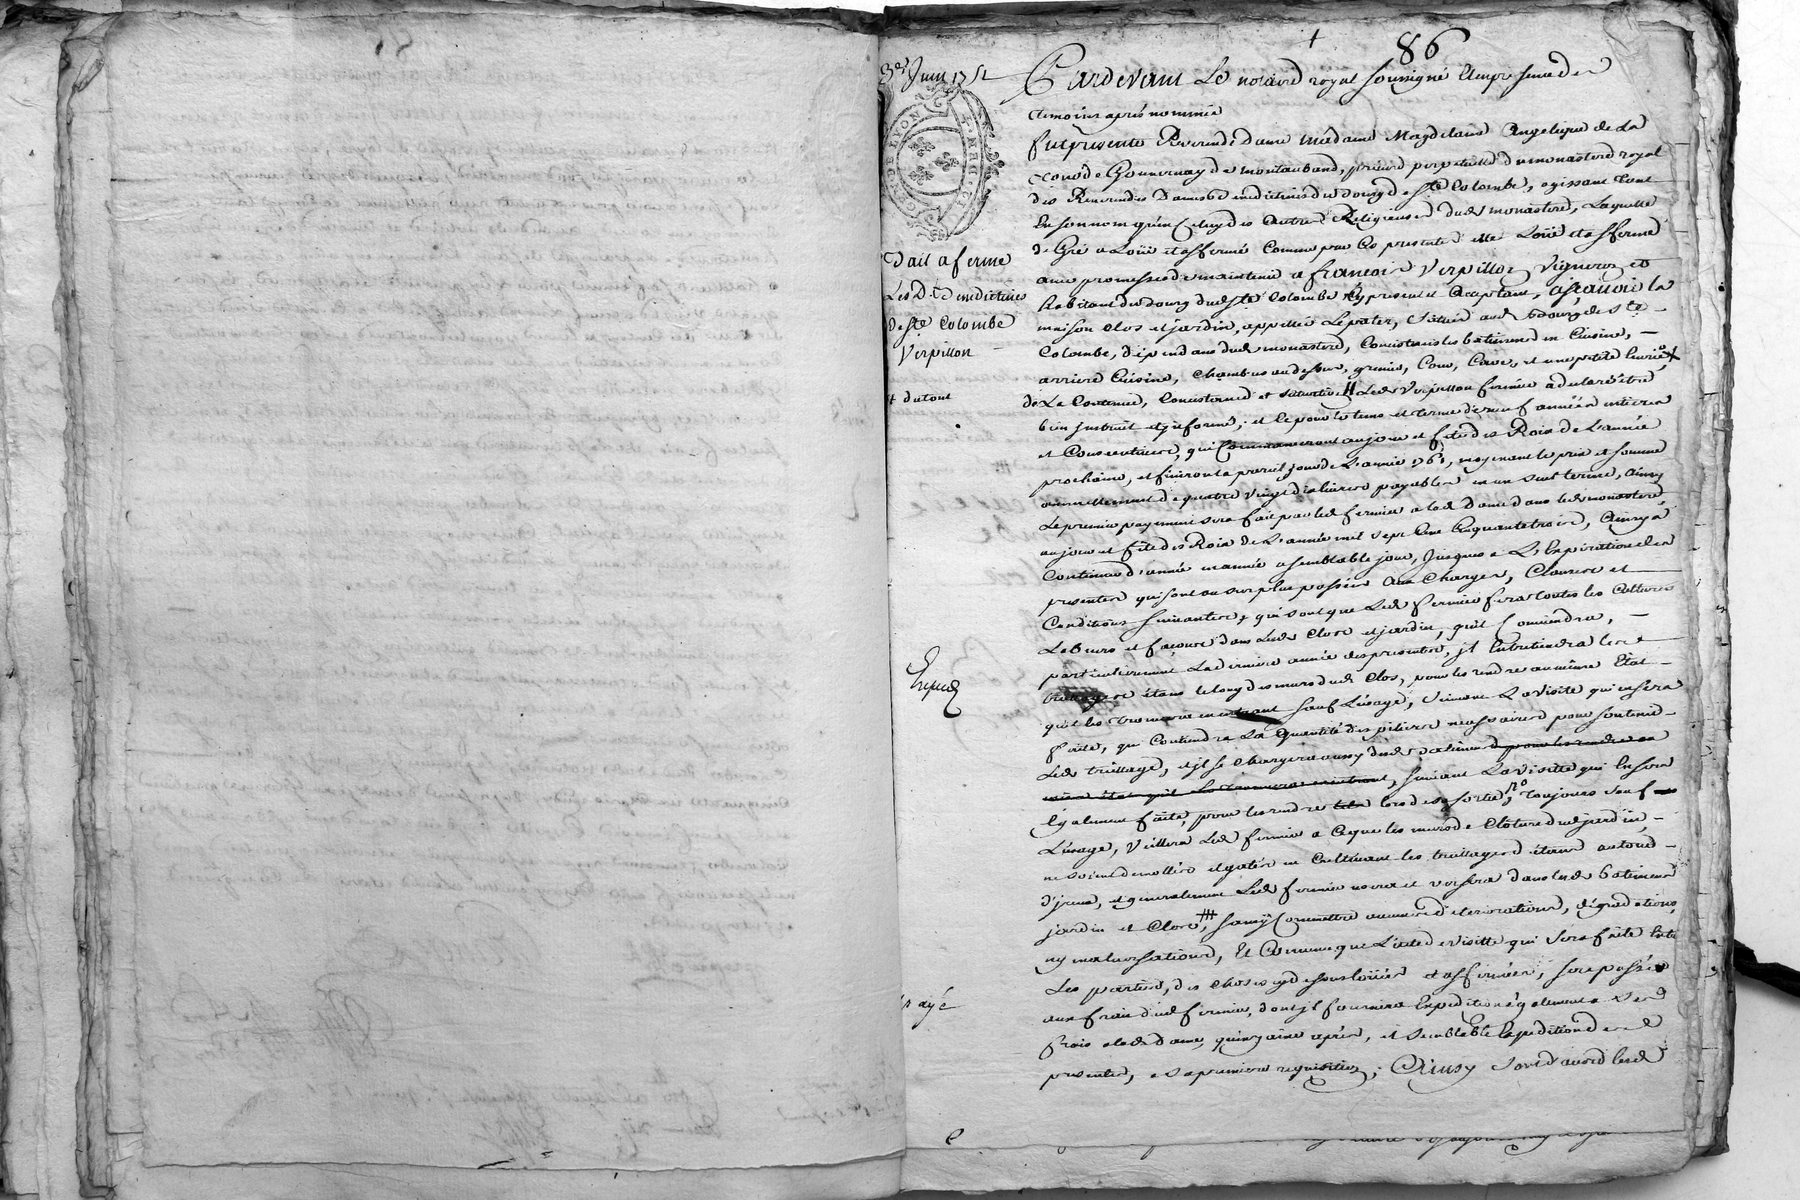 86
3e Juin 1752
GEN. DE LYON
Bail a ferme
Les D. Benedictines
De Ste Colombe
Verpillon
+ du tout
Expedié
payé
Pardevant Le notaire royal soussigné Et en presence des
temoins après nommés
fut presente Reverende Dame Madame Magdelaine Angelique de La
de Gouvernay de montauband, prieure perpetuelle du monastere royal
des Reverendes Dames benedictines du bourg de Ste Colombe, agissant tant
En son nom qu'en Celuy des autres Religieuses dud monastere, Laquelle
de Gré a Loüé et affermé Comme par Ces presentes elle Loüe et afferme
avec promesse de maintenir a francois Verpillon Vigneron et
habitant du bourg dud Ste Colombe Cy present et acceptant, a sçavoir la
maison clos et jardin, appellés Le prater, Situés aud bourg de Ste
Colombe, dépendans dud monastere, Consistans les bâtimens en Cuisine,
arriere Cuisine, Chambres au dessus, grenier, Cour, Cave, et une petite Ecurie +
de La Contenue, Consistance et situation Led Verpillon fermier a declaré être
bien instruit et informé; et Ce pour le tems et terme de neuf années entieres
et Consecutives, qui Commenceront au jour et fête des Rois de L'année
prochaine, et finiront a pareil jour de L'année 1761, moyenant le prix et somme
annuellement de quatre vingt dix livres payables en un seul terme, ainsy
Le premier payement sera fait par led fermier a lad dame dans led monastere
au jour et fête des Rois de L'année mil sept Cent Cinquante trois, Ainsy a
Continuer d'année en année a semblable jour, Jusques a L'Expiration des
presentes qui sont au surplus passées aux Charges, Clauses et
Conditions suivantes, qui sont que Led fermier fera toutes les Cultures
Labeurs et façons dans Led Clos et jardin, qu'il Conviendra,
particulierement La derniere année des presentes, jl Entretiendra les
étans le long des murs dud Clos, pour les rendre au même Etat
qu'il les trouvera en entrant sauf L'usage, suivant La visite qui en sera
faite, qui Contendra La quantité des piliers necessaires pour soutenir
Led treillage, et jl se chargera aussy desd batimens pour les rendre au
même état qu'il Les trouvera en entrant, suivant La visitte qui En sera
Egalement faite, pour les rendre tels lors de sa sortie, Toujours sauf
L'usage, Veillera Led fermier a Ce que les murs de Clôture dud jardin,
ne soient demollis et gatés en Cultivant les treillages étans autour
d'jceux, et generalement Led fermier usera et versera dans lesd batimens
jardin et Clos, sans y Commettre aucunes déteriorations, dégradations
ny malversations, Et Comme que L'acte de visitte qui sera faite Entre
Les parties, des choses cy dessus loüées et affermées, sera passée
aux frais dud fermier, dont jl fournira Expedition également a ses
frais a lad dame, quinzaine après, et semblable Expedition des
presentes, a sa premiere requisition; Ainsy sont d'accord lesd